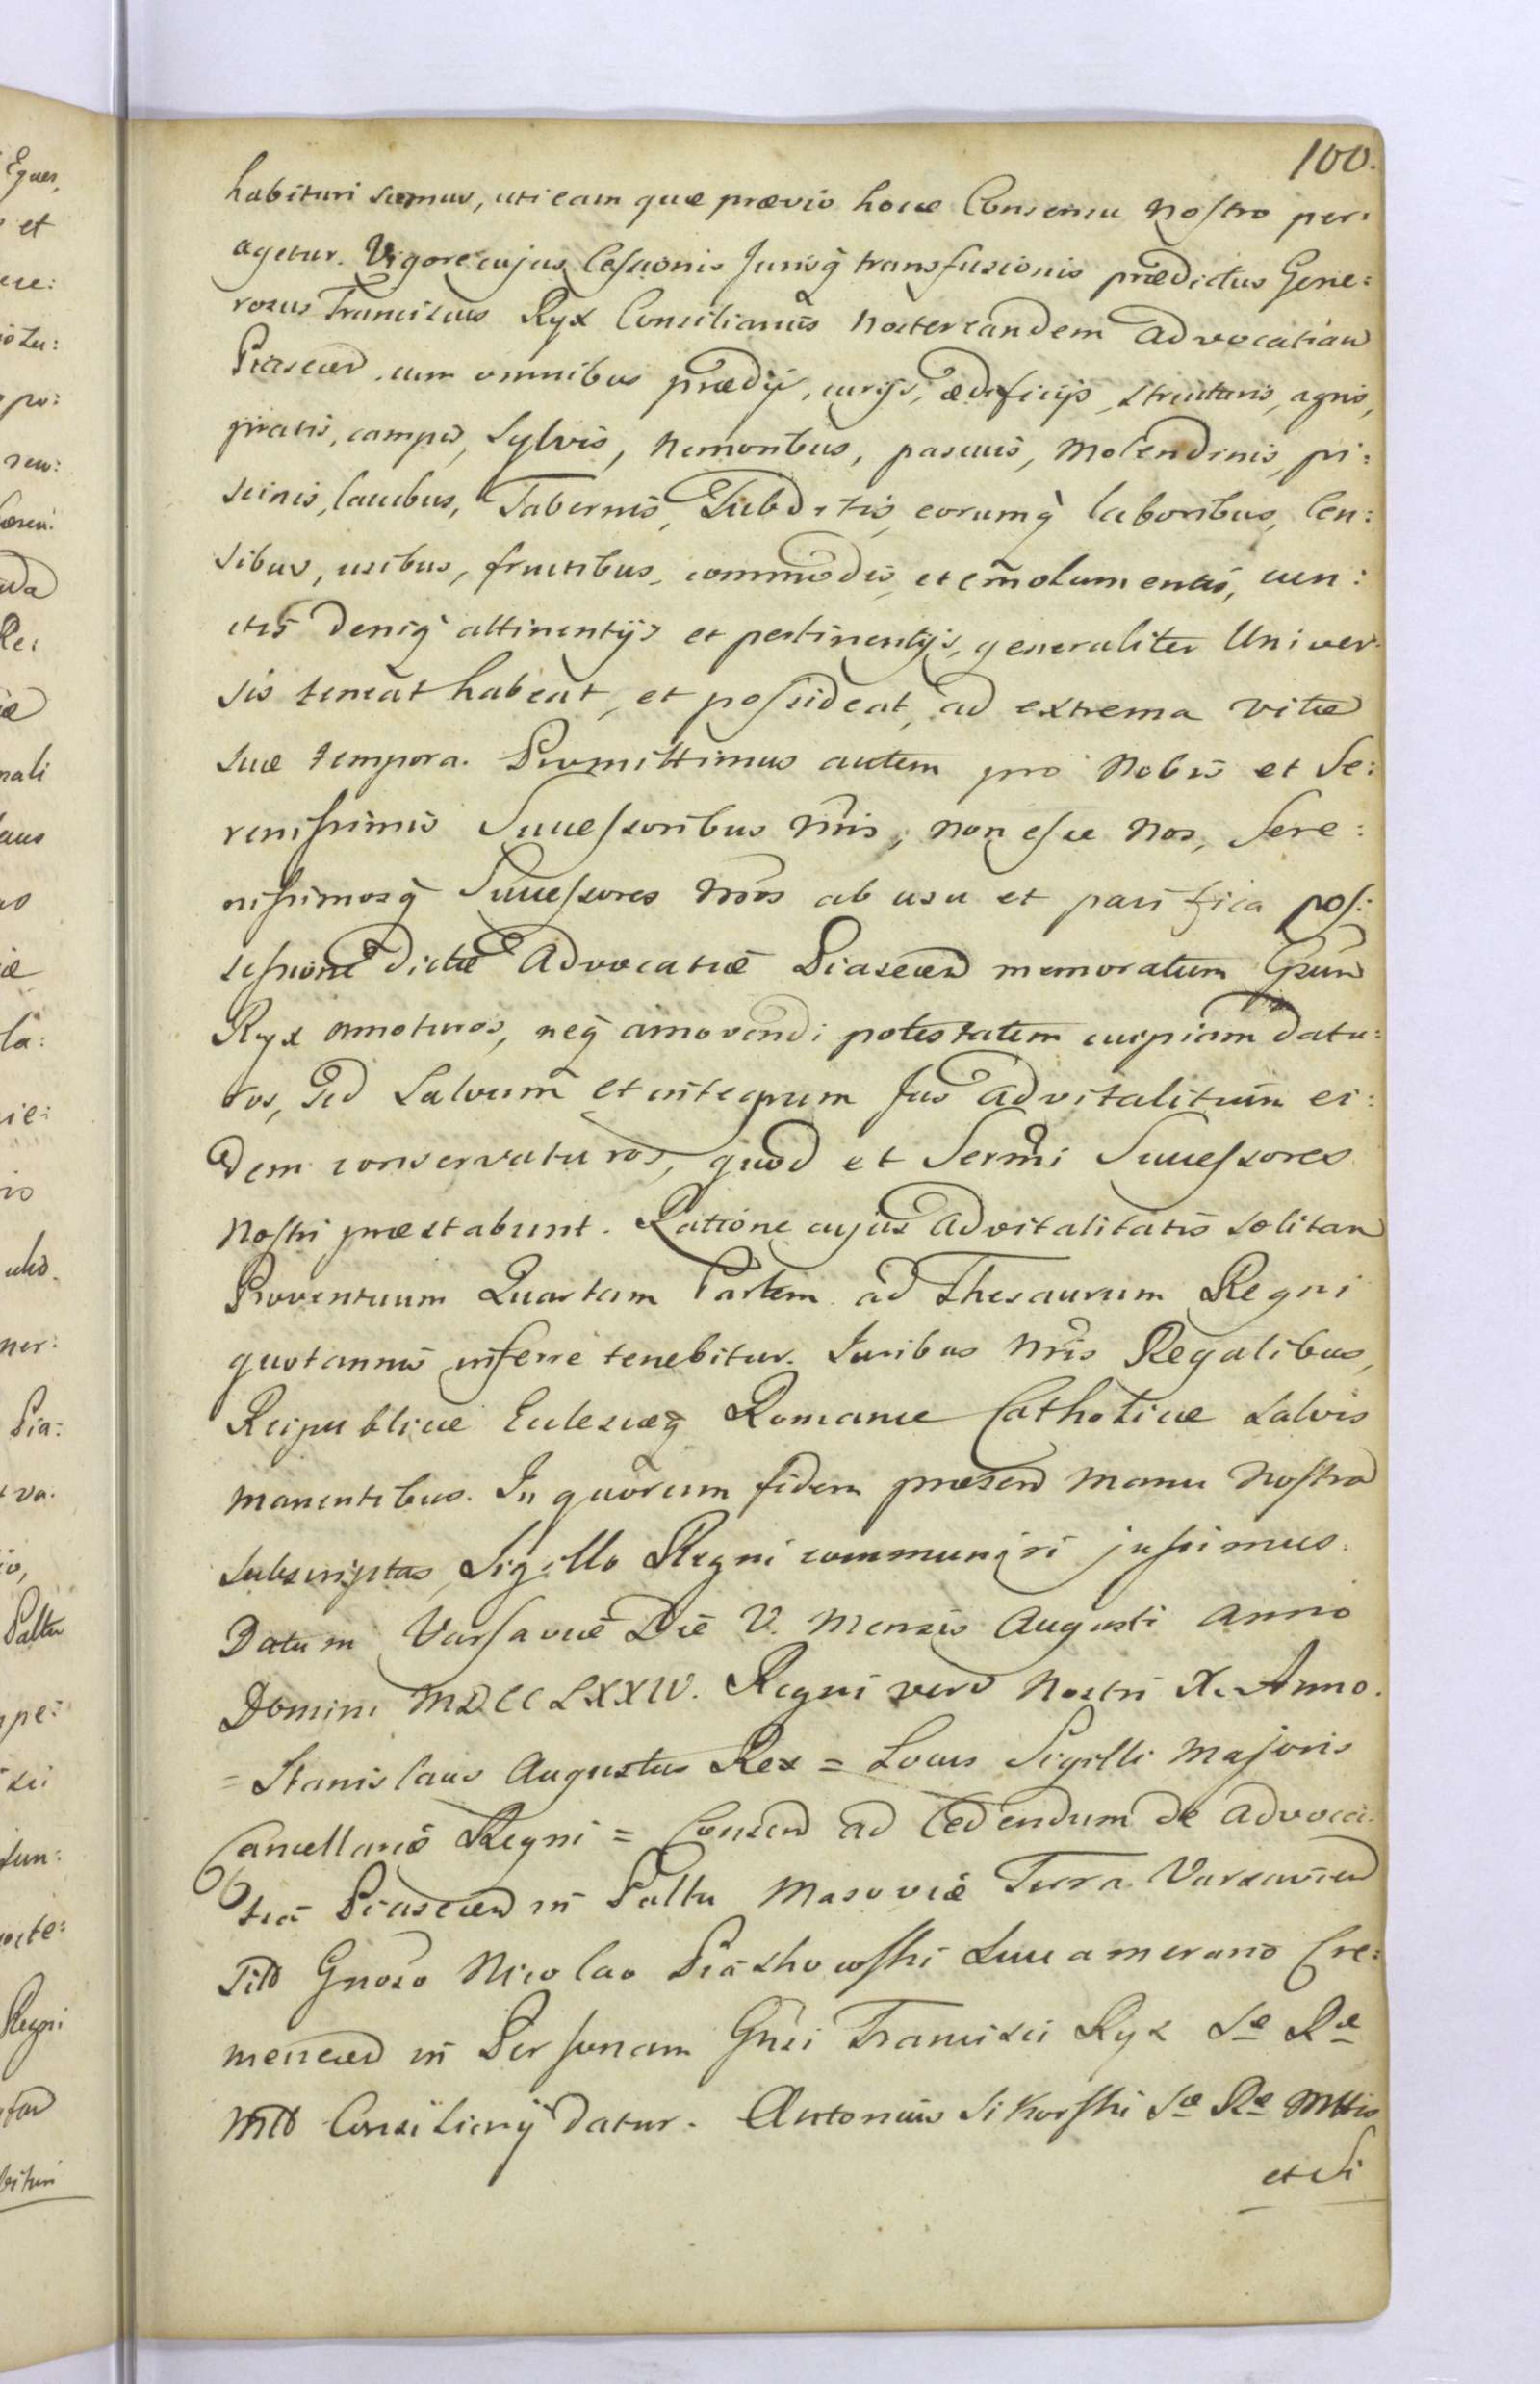 100.
habituri sumus, uti eam quæ prævio hocce Consensu Nostro per:
agetur. Vigore cujus Cessionis Jurisq̀ transfusionis prædictus Gene:
rosus Franciscus Ryx Consiliarius Noster eandem Advocatiam
Piasecen cum omnibus prædijs, curijs, ædificijs, structuris, agris,
pratis, campis, Sylvis, Nemoribus, pascuis, Molendinis, pi:
scinis, lacubus, Tabernis, Subditis, eorumq̀ laboribus, Cen:
sibus, usibus, fructibus, commodis, et emolumentis, cun:
ctis deniq̀ attinentijs et pertinentijs, generaliter Univer:
sis teneat habeat, et possideat, ad extrema vitæ
suæ tempora. Promittimus autem pro Nobis et Se:
renissimis Successoribus Nris, non esse Nos, Sere:
nissimosq̀ Successores Nros ab usu et pacifica pos:
sessione dictæ Advocatiæ Piasecen memoratum Gsum
Ryx amoturos, neq̀ amovendi potestatem cuipiam datu:
ros, Sed Salvum et integrum Jus advitalitium ei:
dem conservaturos, quod et Sermi Successores
Nostri præstabunt. Ratione cujus advitalitatis solitam
Proventuum Quartam Partem ad Thesaurum Regni
quotannis inferre tenebitur. Juribus Nris Regalibus,
Reipublicæ Ecclesiæq̀ Romanæ Catholicæ salvis
manentibus. In quorum fidem præsen Manu Nostra
subscriptas, Sigillo Regni communiri jussimus.
Datum Varsaviæ Die V. Mensis Augusti Anno
Domini MDCCLXXIV. Regni vero Nostri X. Anno.
= Stanislaus Augustus Rex = Locus Sigilli Majoris
Cancellariæ Regni = Consen ad Cedendum de Advoca:
tia Piasecen in Paltu Masoviæ Terra Varsavien
Sito Gnoso Nicolao Piaskowski Succamerario Cre:
menecen in Personam Gnsi Francisci Ryx Sæ Ræ
Mtis Consiliarij datur. Antonius Sikorski Sæ Ræ Mttis
et Si